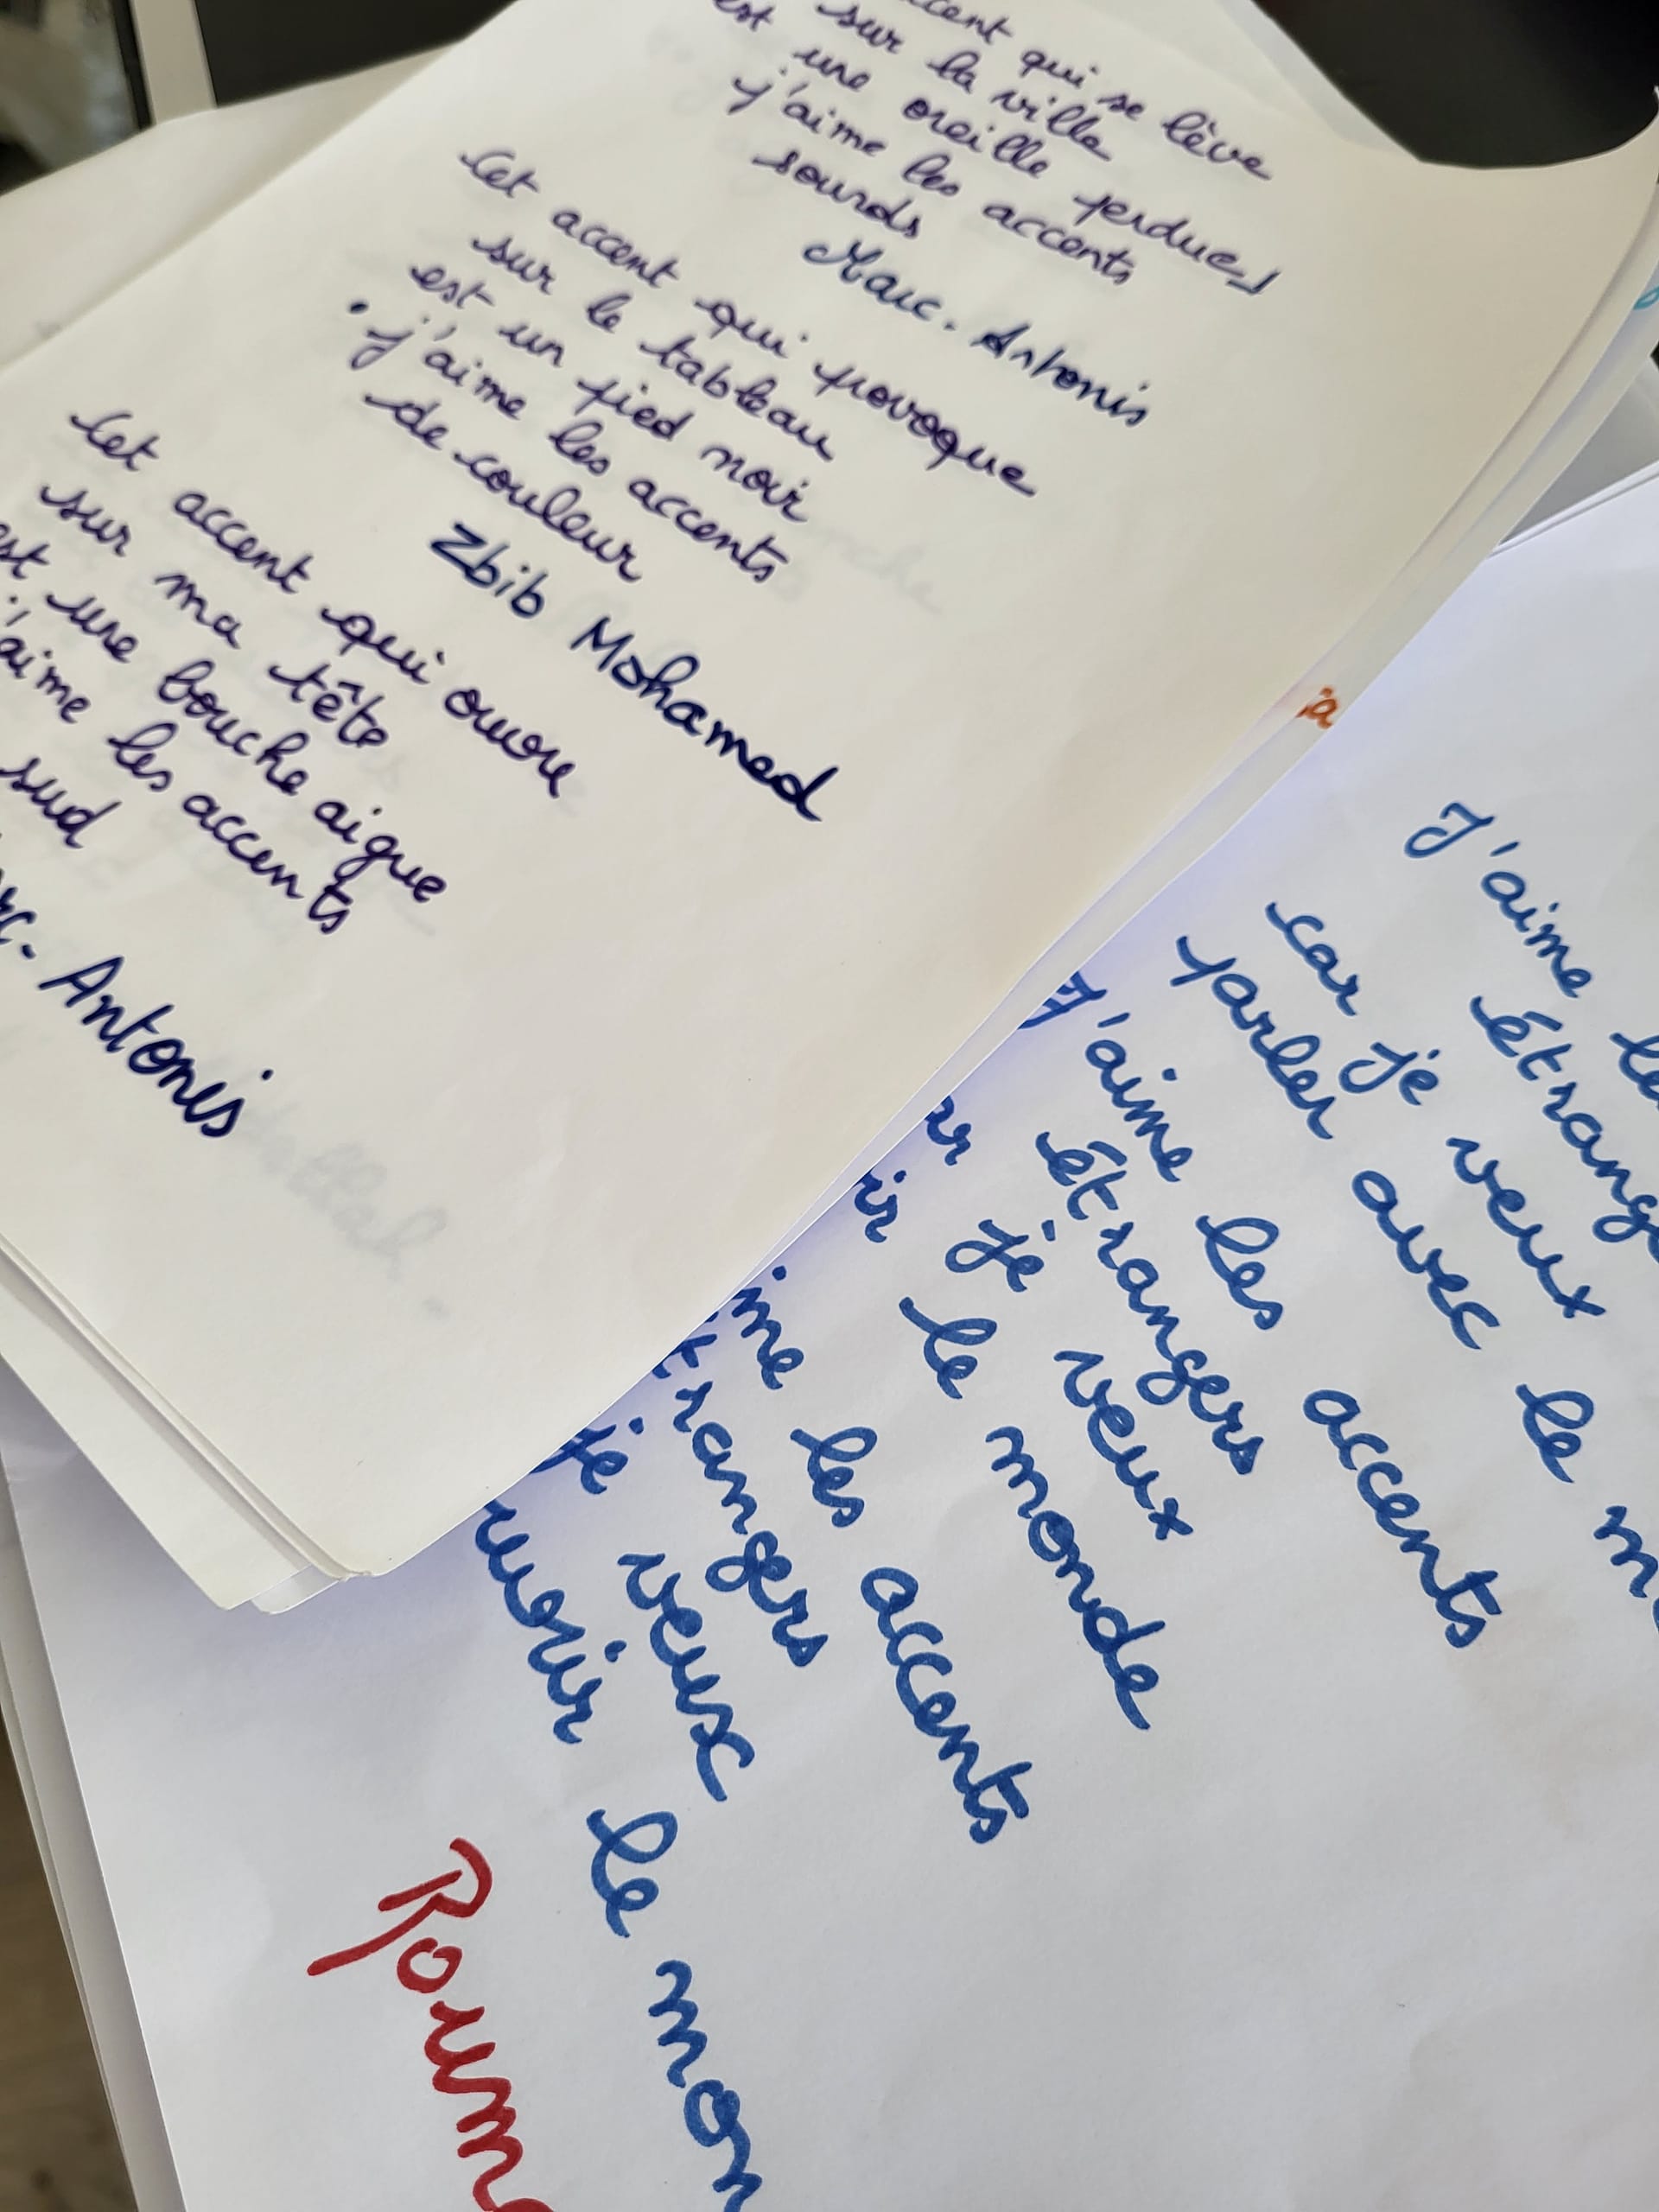 qui se lève
sur la ville
est une oreille perdue
j'aime les accents
sourds
Marc-Antonis
Cet accent qui provoque
sur le tableau
est un pied noir
. j'aime les accents
de couleur
Zbib Mohamed
Cet accent qui ouvre
sur ma tête
est une bouche aigue
j'aime les accents
sud
Antonis
J'aime
car je veux
parler avec le
J'aime les accents
étrangers
je veux
le monde
les accents
je veux
le